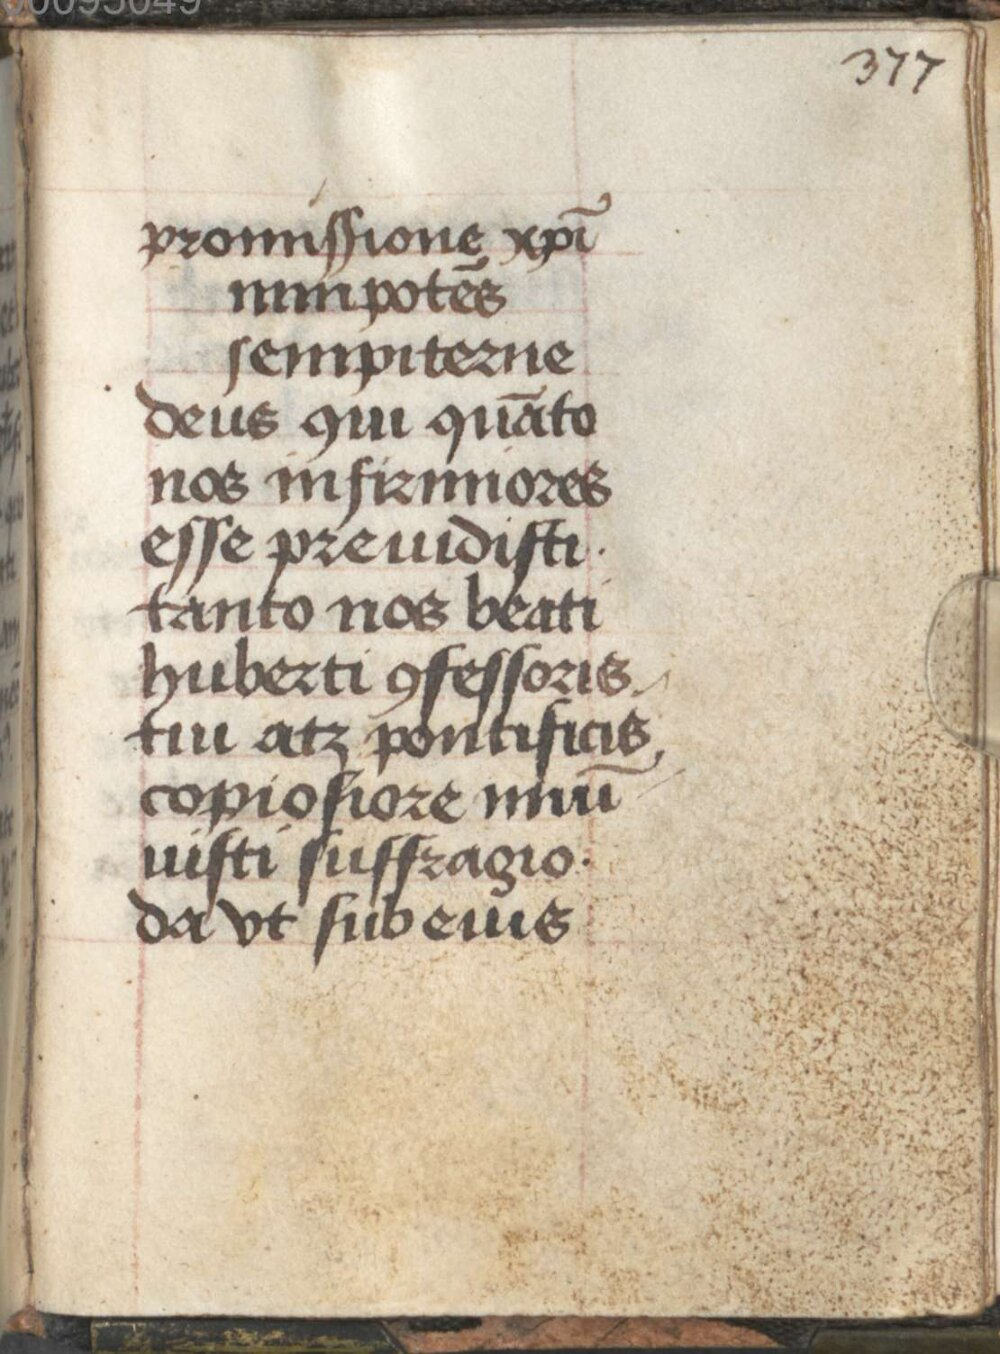 00095049
377
promissione xpī
mnipotēs
sempiterne
deus qui quāto
nos infirmiores
esse preuidisti ·
tanto nos beati
huberti ꝯfessoris
tui atꝫ pontificis
copiosiore muū
uisti suffragio ·
da vt sub eius